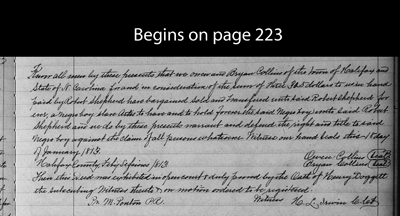 Begins on page 223
Know all men by these presents that we Owen and Bryan Collins of the town of Halifax and
State of N Carolina for and in consideration of the sum of dollars to us in hand
paid by Robert Shepherd have bargained sold and transferred unto said Robert Shepherd for
ever, a negro boy slave to have and to hold forever the said Negro boy, unto said Robert
Shepherd and we do by these presents warrant and defend the right and title to said
Negro boy against the claim of all persons whatever. Witness our hand & seals this 18 day
of January, 1813.
Owen Collins (Seal)
Halifax County, Feby Sessions 1813
Bryan Collins (Seal)
Then this deed was exhibited in open court & duly proved by the Oath of Henry Doggett
the subscribing Witness thereto & on motion ordered to be registered.
Witness